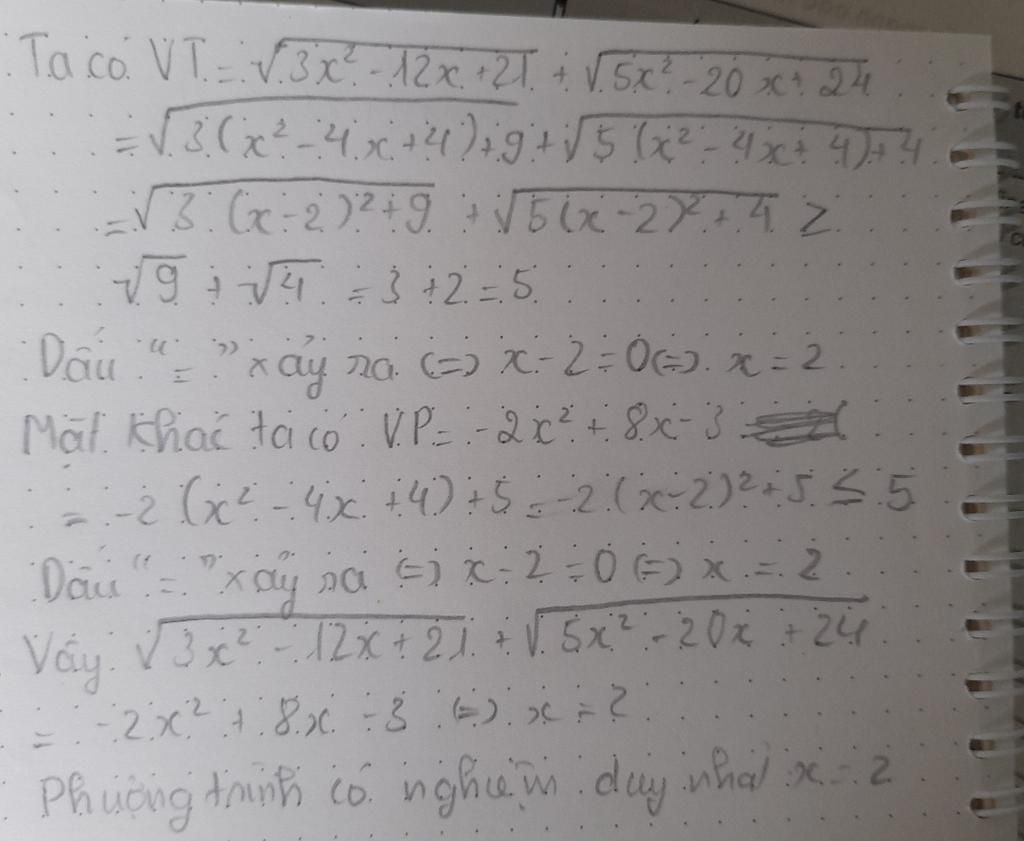 Ta có VT = √3x² - 12x + 21 + √5x² - 20x + 24
= √3(x² - 4x + 4) + 9 + √5(x² - 4x + 4) + 4
= √3(x - 2)² + 9 + √5(x - 2)² + 4 ≥
√9 + √4 = 3 + 2 = 5
Dấu "=" xảy ra (=) x - 2 = 0 (=) x = 2
Mặt khác ta có VP = -2x² + 8x - 3
= -2(x² - 4x + 4) + 5 = -2(x - 2)² + 5 ≤ 5
Dấu "=" xảy ra (=) x - 2 = 0 (=) x = 2
Vậy √3x² - 12x + 21 + √5x² - 20x + 24
= -2x² + 8x - 3 (=) x = 2
Phương trình có nghiệm duy nhất x = 2